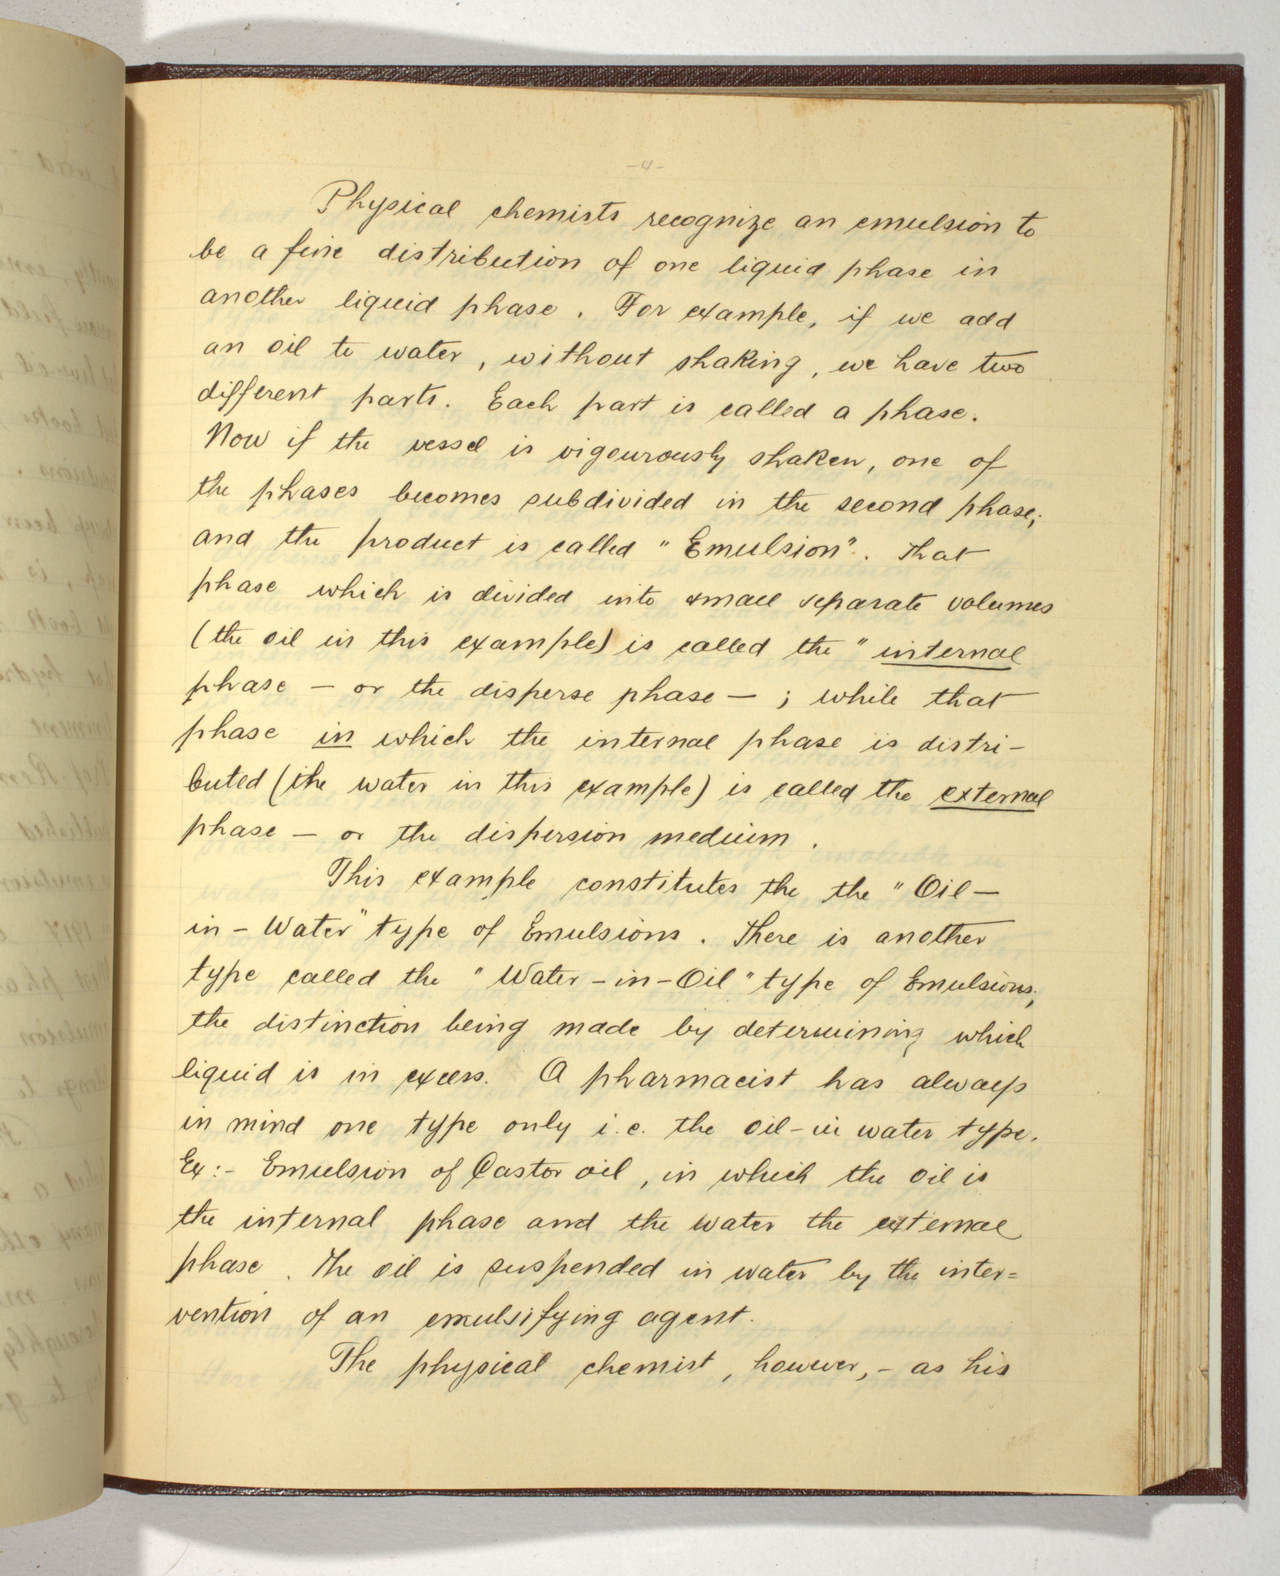 -4-
Physical chemists recognize an emulsion to
be a fine distribution of one liquid phase in
another liquid phase. For example, if we add
an oil to water, without shaking, we have two
different parts. Each part is called a phase.
Now if the vessel is vigourously shaken, one of
the phases becomes subdivided in the second phase;
and the product is called "Emulsion". That
phase which is divided into small separate volumes
(the oil in this example) is called the "internal
phase — or the disperse phase — ; while that
phase in which the internal phase is distri-
buted (the water in this example) is called the external
phase — or the dispersion medium.
This example constitutes the the "Oil-
in-Water" type of Emulsions. There is another
type called the "Water-in-Oil" type of Emulsions;
the distinction being made by determining which
liquid is in excess. A pharmacist has always
in mind one type only i.e. the oil-in water type.
Ex:- Emulsion of Castor oil, in which the oil is
the internal phase and the water the external
phase. The oil is suspended in water by the inter=
vention of an emulsifying agent.
The physical chemist, however,- as his